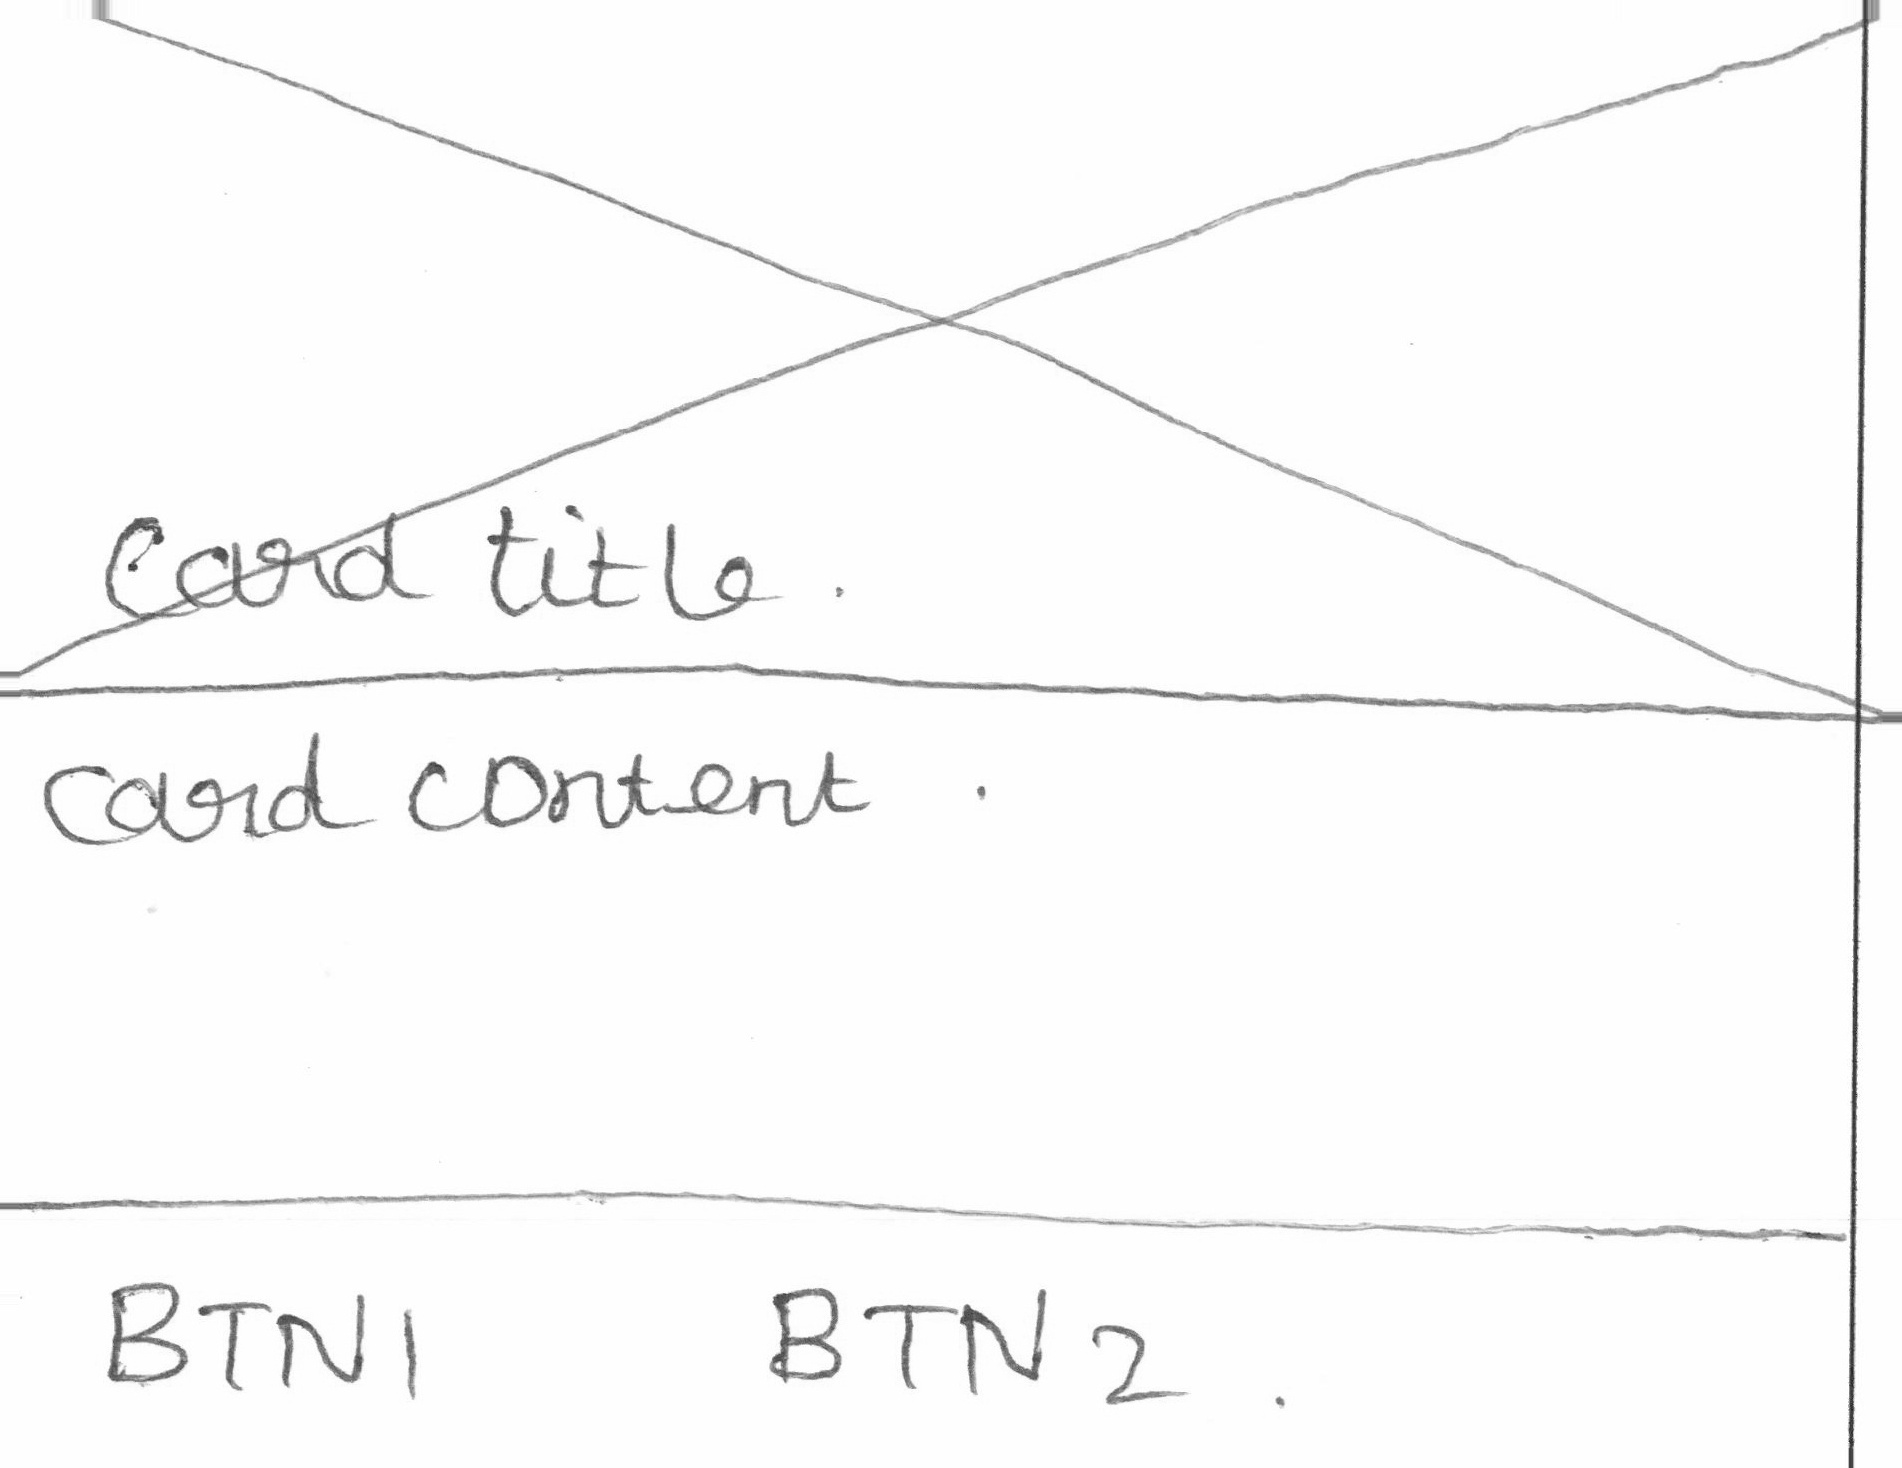 Card title.
card content.
BTN1 BTN2.